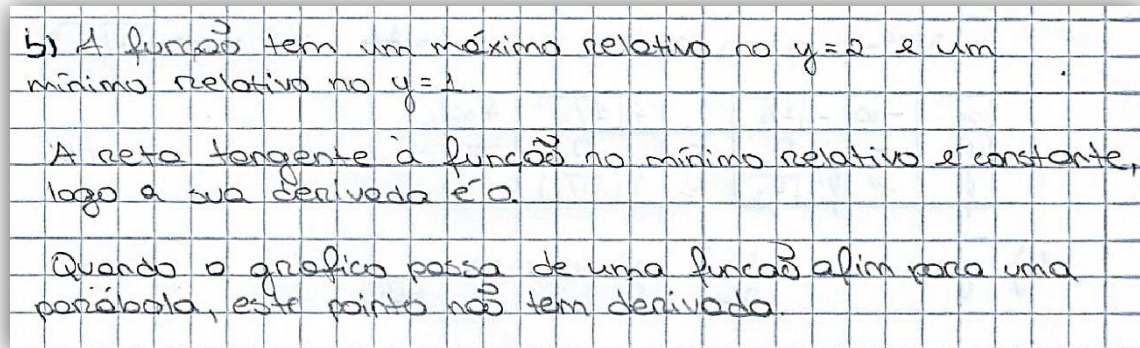 b) A função tem um máximo relativo no y=2 e um
mínimo relativo no y=1.
A reta tangente à função no mínimo relativo é constante,
logo a sua derivada é 0.
Quando o grafico passa de uma função afim para uma
parábola, este painto não tem derivada.